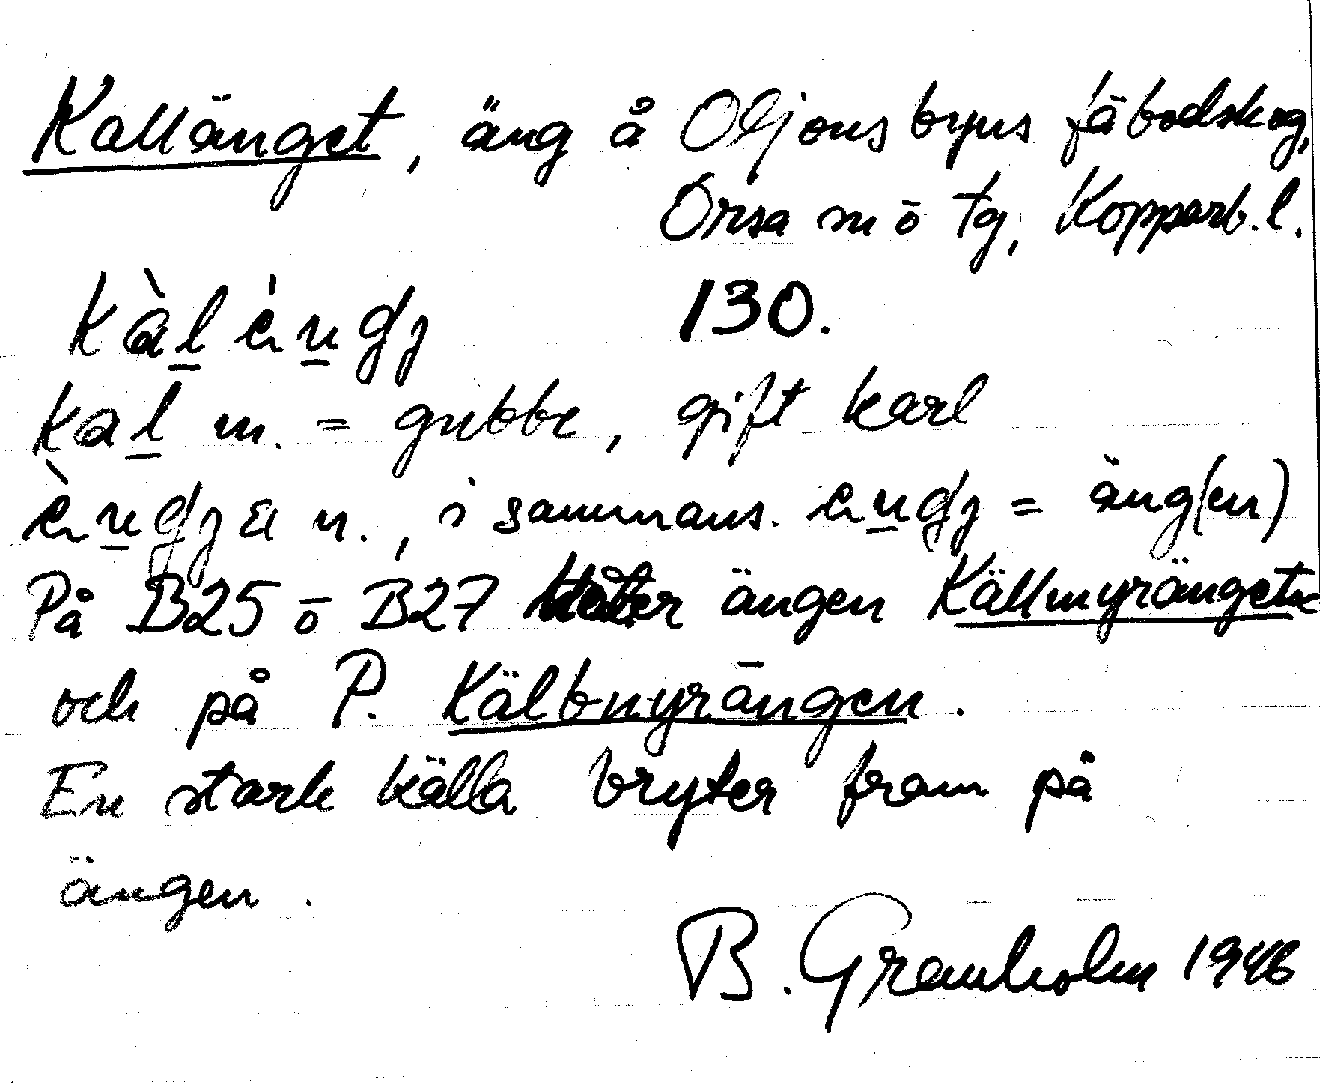 Kallänget, äng å Oljonsbyns fäbodskog,
Orsa sn ō tg, Kopparb. l.
kàl èndj 130.
kal m. = gubbe, gift karl
èndja n., i sammans. endj = äng(en)
På B25 ō B27 heter ängen Källmyränget
och på P. Kälbmyrängen.
En stark källa bryter fram på
ängen.
B. Granholm 1946